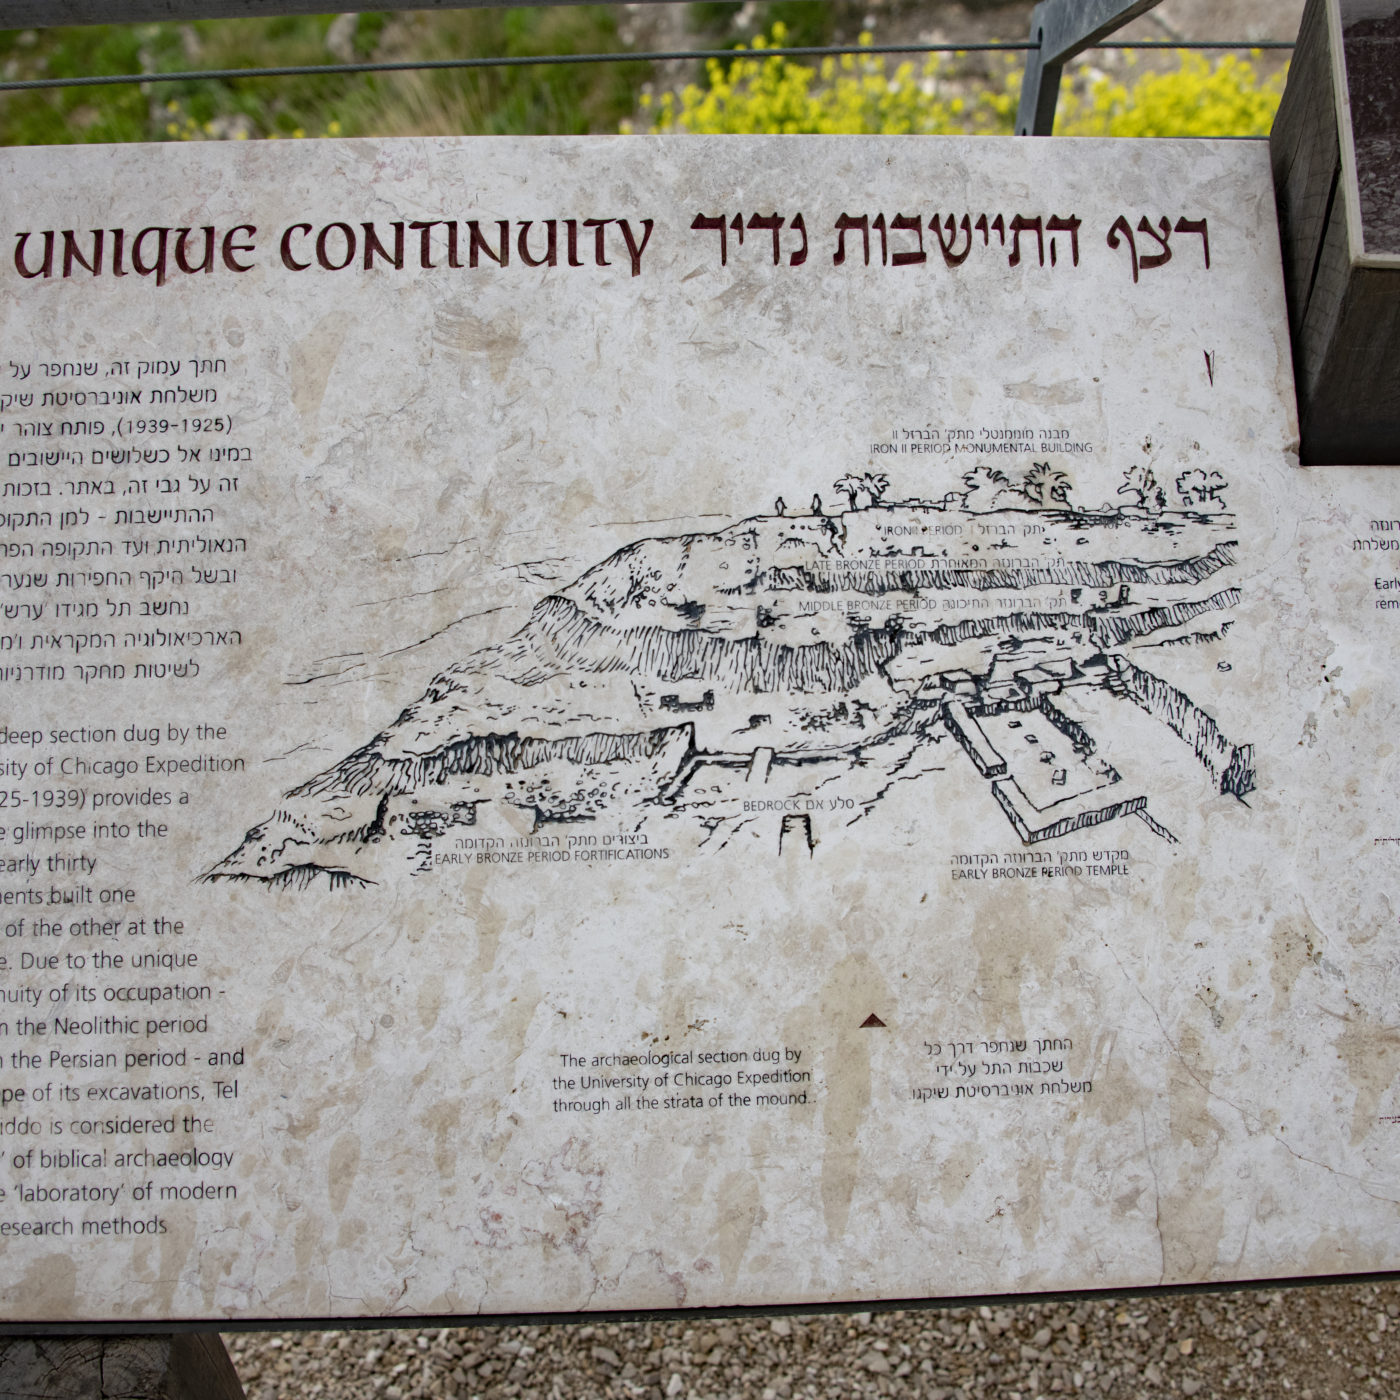 UNIQUE CONTINUITY רצף התיישבות נדיר
חתך עמוק זה, שנחפר על
משלחת אוניברסיטת שיק
(1939-1925), פותח צוהר
במינו אל כשלושים היישובים
זה על גבי זה, באתר. בזכות
ההתיישבות - למן התקופ
הנאוליתית ועד התקופה הפר
ובשל היקף החפירות שנער
נחשב תל מגידו 'ערש'
הארכיאולוגיה המקראית ו'מ
לשיטות מחקר מודרניות
deep section dug by the
sity of Chicago Expedition
25-1939) provides a
e glimpse into the
early thirty
ments built one
of the other at the
e. Due to the unique
nuity of its occupation -
m the Neolithic period
h the Persian period - and
pe of its excavations, Tel
iddo is considered the
' of biblical archaeology
e 'laboratory' of modern
research methods
מבנה מונומנטלי מתק' הברזל II
IRON II PERIOD MONUMENTAL BUILDING
IRON II PERIOD תק' הברזל
LATE BRONZE PERIOD תק' הברונזה המאוחרת
MIDDLE BRONZE PERIOD תק' הברונזה התיכונה
BEDROCK סלע אם
ביצורים מתק' הברונזה הקדומה
EARLY BRONZE PERIOD FORTIFICATIONS
מקדש מתק' הברונזה הקדומה
EARLY BRONZE PERIOD TEMPLE
The archaeological section dug by
the University of Chicago Expedition
through all the strata of the mound..
החתך שנחפר דרך כל
שכבות התל על ידי
משלחת אוניברסיטת שיקגו.
רונזה
משלחת
Early
rem